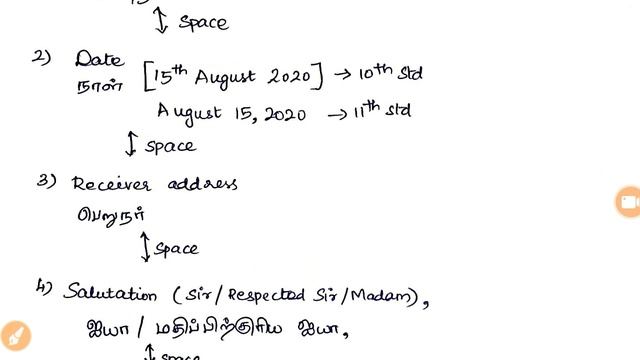 ↕ space
2) Date
நாள் [15th August 2020] → 10th Std
August 15, 2020 → 11th std
↕ space
3) Receiver address
பெறுநர்
↕ space
4) Salutation (Sir/Respected Sir/Madam),
ஐயா / மதிப்பிற்குரிய ஐயா,
↕ space